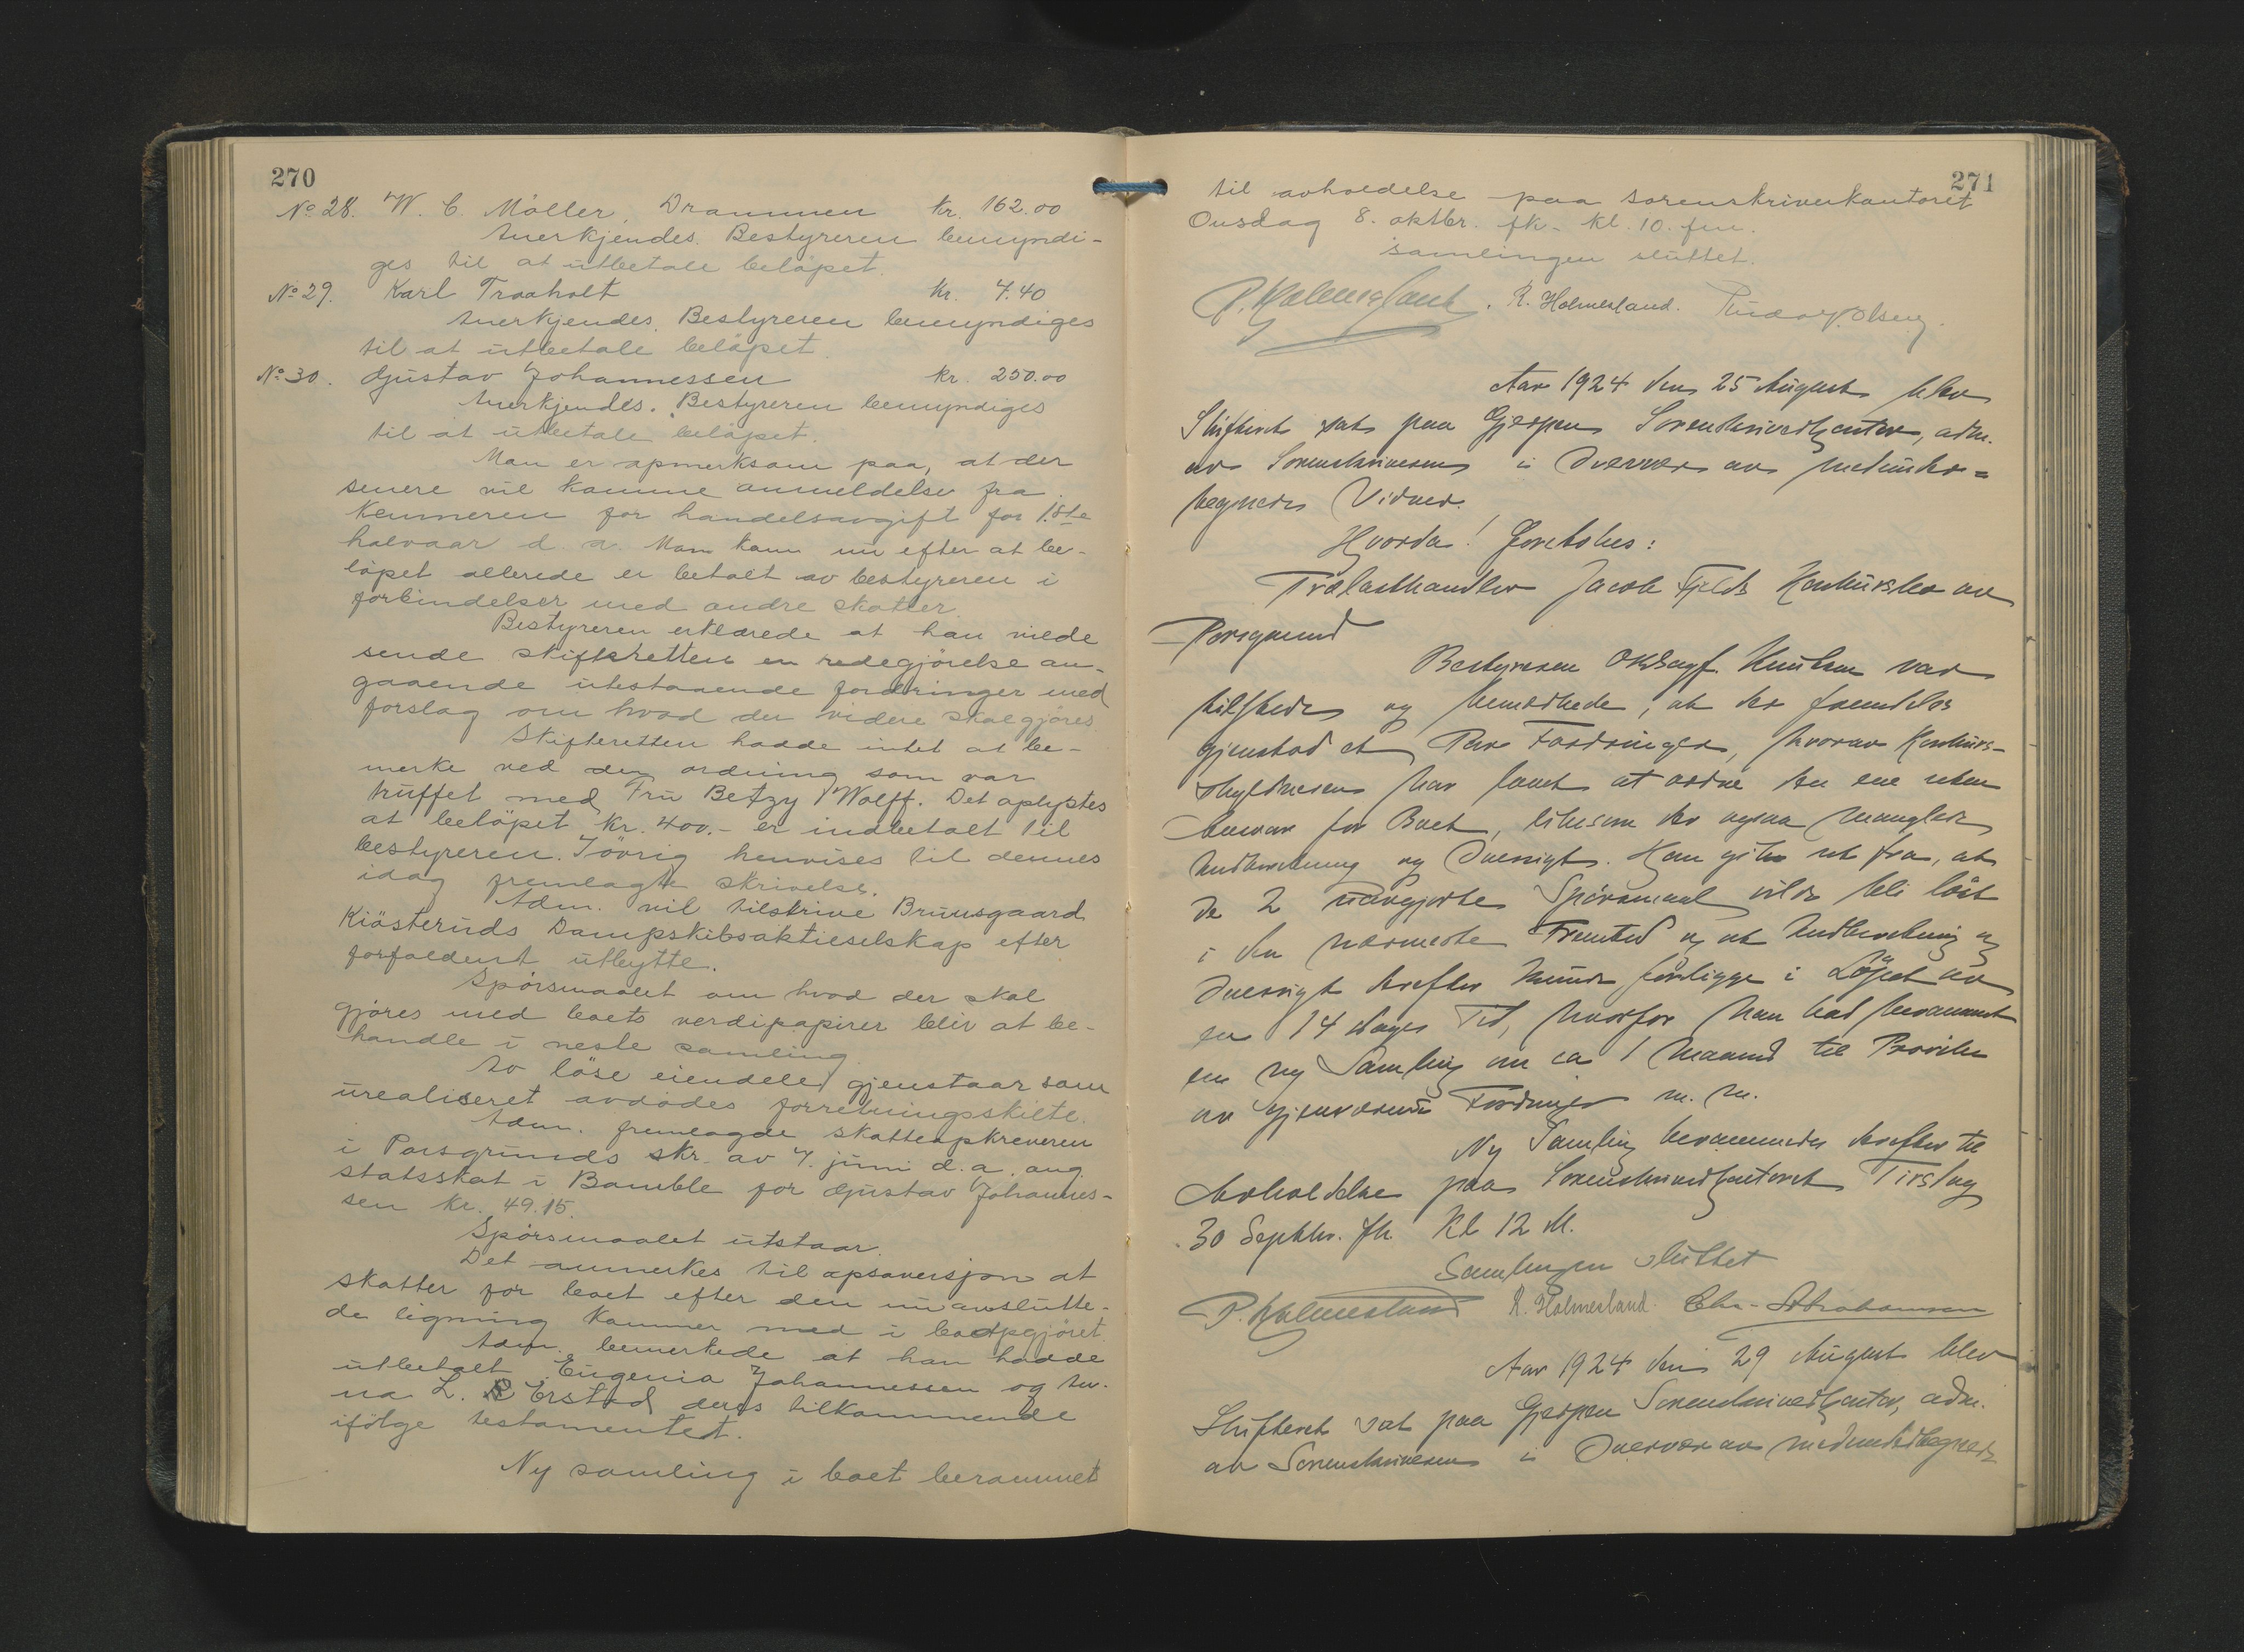 270
No 28. W. C. Möller, Drammen kr. 162.00
Anerkjendes. Bestyreren bemyndi-
ges til at utbetale beløpet.
No 29. Karl Traaholt kr. 4.40
Anerkjendes. Bestyreren bemyndiges
til at utbetale beløpet.
No 30. Gustav Johannessen kr. 250.00
Anerkjendes. Bestyreren bemyndiges
til at utbetale beløpet.
Man er opmerksom paa, at der
senere vil komme anmeldelse fra
Kemneren for handelsavgift for 1.ste
halvaar d. a. Man kom nu efter at be-
løpet allerede er betalt av bestyreren i
forbindelser med andre skatter.
Bestyreren erklærede at han vilde
sende skifteretten en redegjörelse an-
gaaende utestaaende fordringer med
forslag om hvad der videre skal gjøres
Skifteretten hadde intet at be-
merke ved den ordning som var
truffet med Fru Betzy Wolff. Det oplystes
at beløpet kr. 400.- er indbetalt til
bestyreren. Iövrig henvises til dennes
idag fremlagte skrivelse.
Adm. vil tilskrive Bruusgaard
Kiösteruds Dampskibsaktieselskap efter
forfaldent utbytte.
Spörsmaalet om hvad der skal
gjøres med boets verdipapirer blir at be-
handle i neste samling.
Av löse eiendeler gjenstaar som
urealiseret avdödes forretningsskilte.
Adm. fremlagde skatteopkreveren
i Porsgrunds skr. av 7. juni d. a. ang.
statsskat i Bamble for Gustav Johannes-
sen kr. 49.15.
Spörsmaalet utstaar.
Det anmerkes til opsaversjon at
skatter for boet efter den nu avslutte-
de ligning kommer med i boopgjöret.
Adm. bemerkede at han hadde
utbetalt Eugenia Johannessen og An-
na L. Erstad deres tilkommende
ifölge testamentet.
Ny samling i boet berammet
271
til avholdelse paa sorenskriverkontoret
Onsdag 8. oktbr. fk. kl. 10. fm.
Samlingen sluttet.
P. Holmesland. R. Holmesland. Rudolf Olsen.
Aar 1924 den 25 August blev
Skifteret sat paa Gjerpen Sorenskriverkontor, adm.
av Sorenskriveren i Overvær av medunder-
tegnede Vidner.
Hvorda! Foretokes:
Trælasthandler Jacob Fjelds Konkursbo av
Porsgrund
Bestyreren O.r.sagf. Knutsen var
tilstede og bemerkede, at der fremdeles
gjenstod et Par Fordringer, hvorav Konkurs-
skyldneren har lovet at ordne den ene uten
Ansvar for Boet, likesom der ogsaa mangler
Indberetning og Oversigt. Han gik ut fra, at
de 2 uavgjorte Spörsmaal vilde bli löst
i den nærmeste Fremtid og at Indberetning og
Oversigt derefter kunde foreligge i Löpet av
en 14 dages Tid, hvorfor han bad berammet
en ny Samling om ca 1 Maaned til Prøvelse
av gjenværende Fordringer m. m.
Ny Samling berammedes derefter til
Avholdelse paa Sorenskriverkontoret Tirsdag
30 Septbr. fk. Kl 12 M.
Samlingen sluttet
P. Holmesland R. Holmesland. Chr. Abrahamsen
Aar 1924 den 29 August blev
Skifteret sat paa Gjerpen Sorenskriverkontor, adm.
av Sorenskriveren i Overvær av medundertegnede